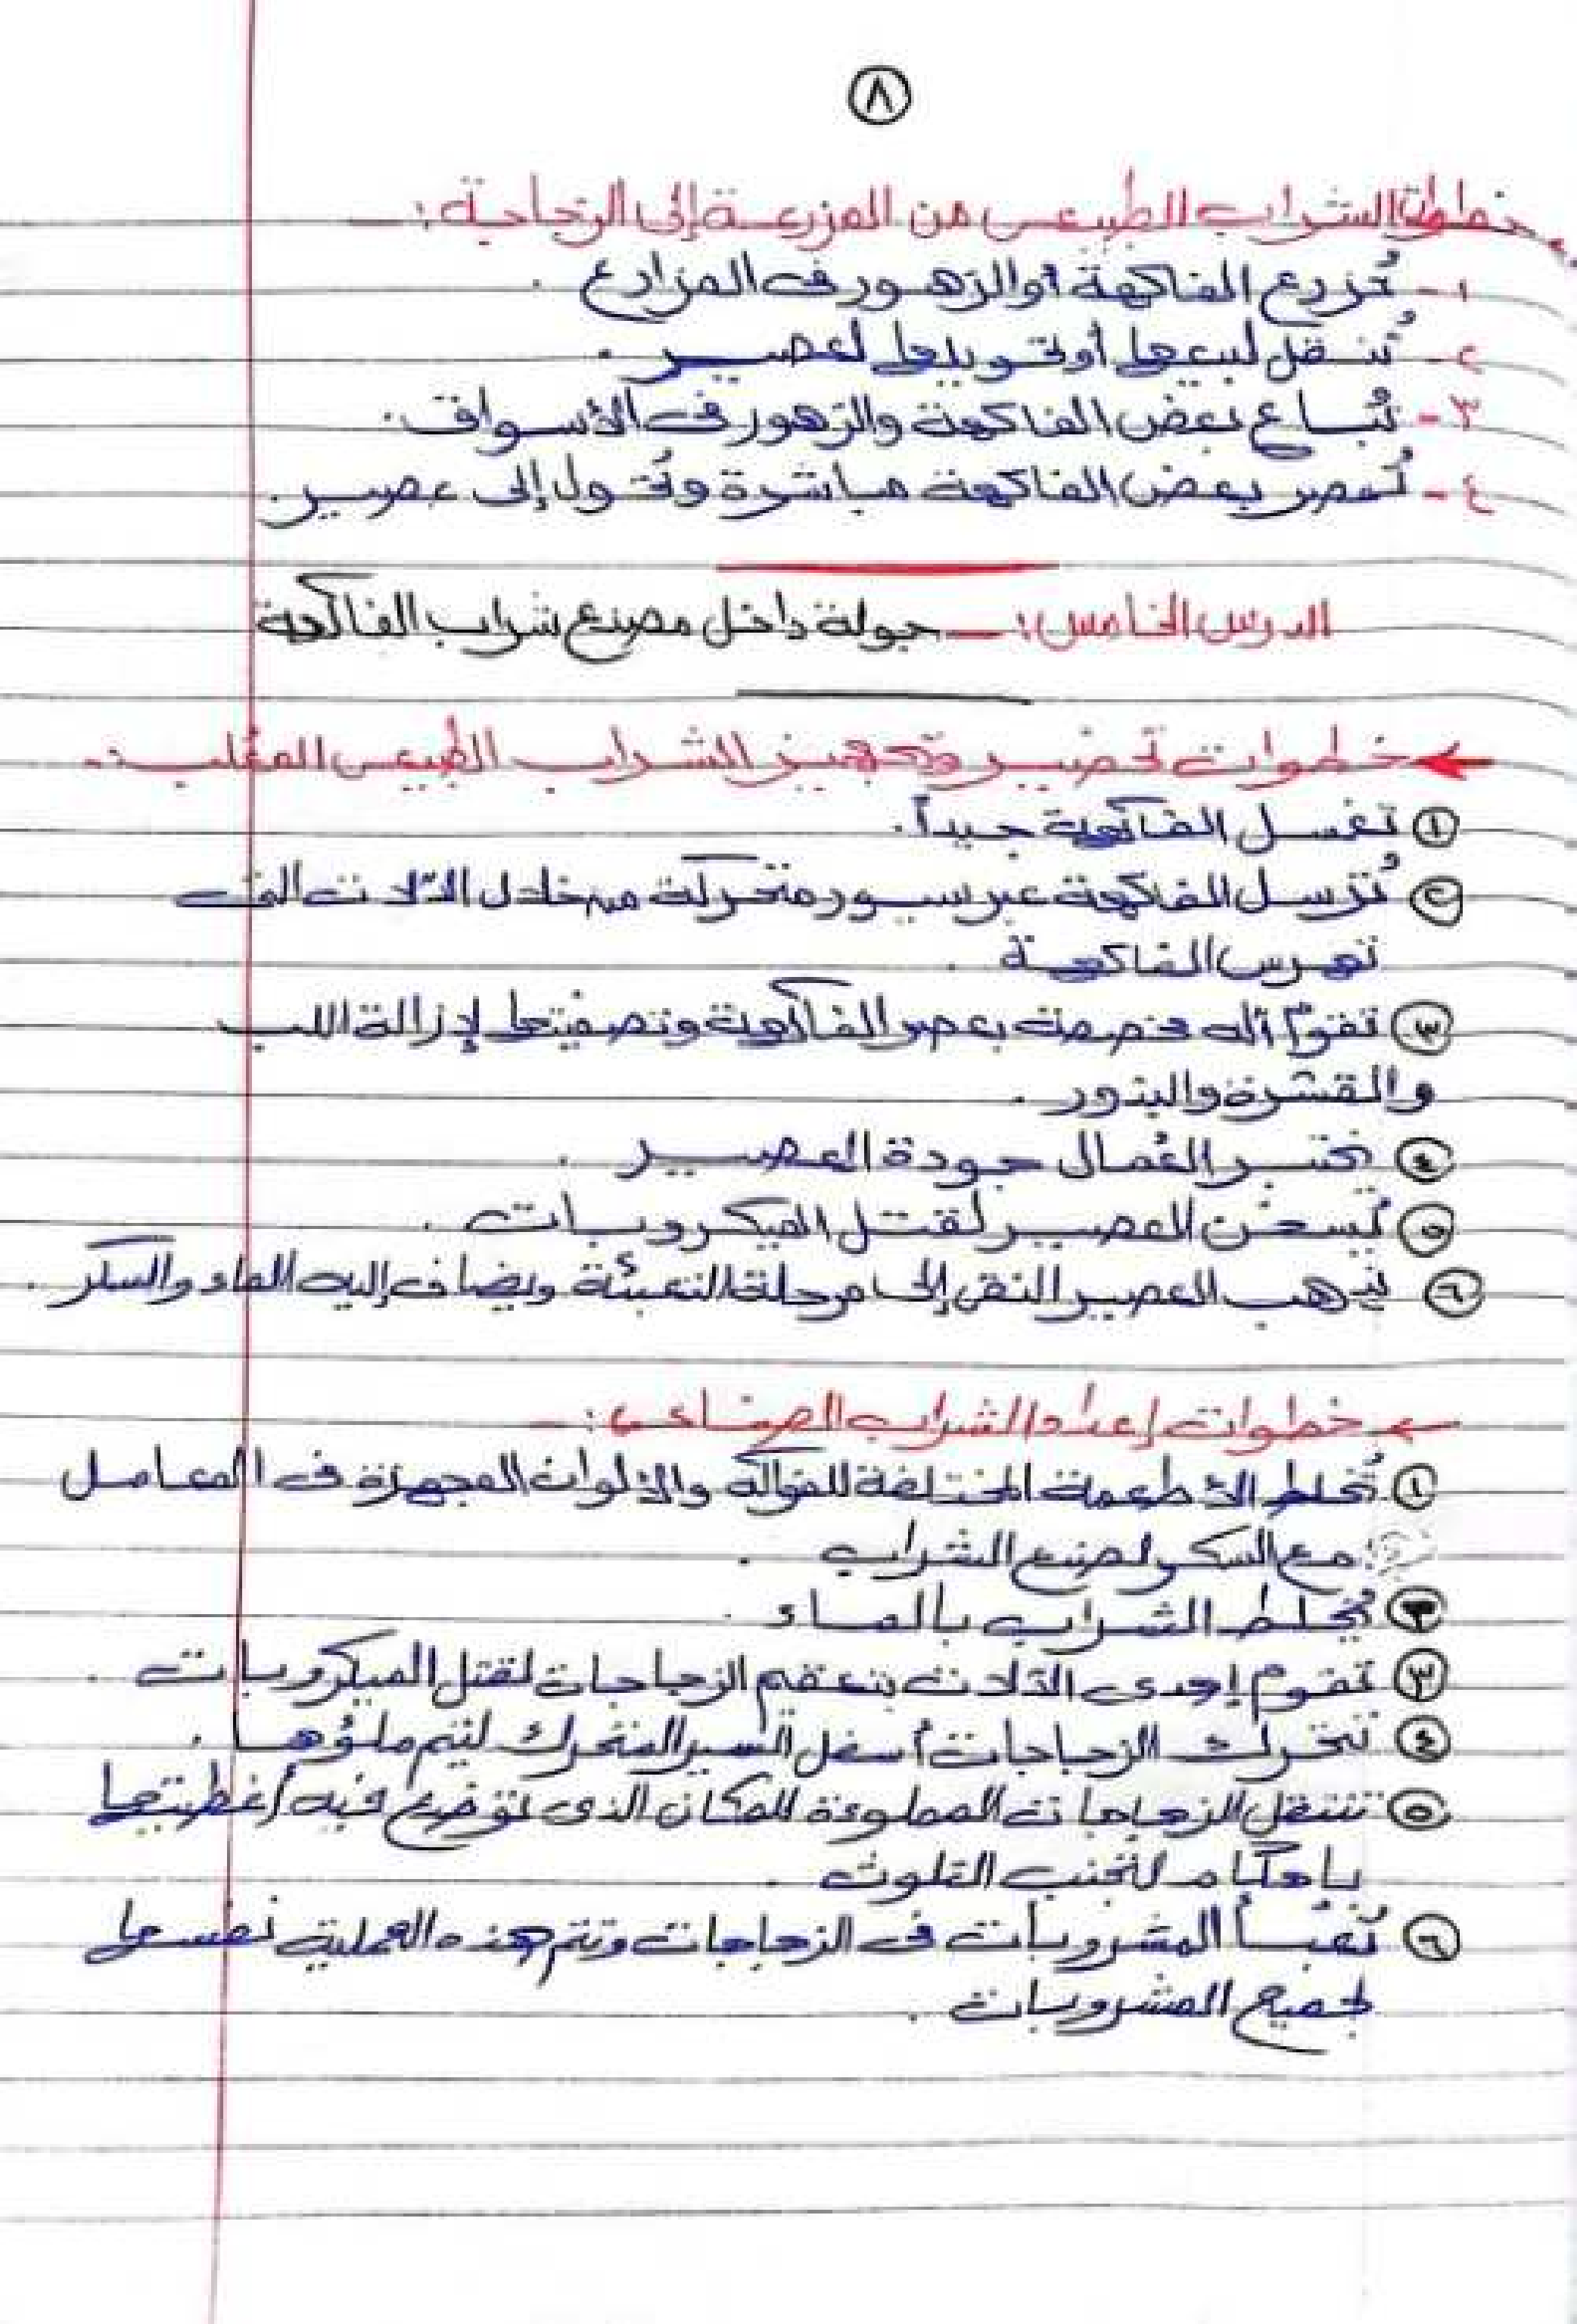 ٨
خطوات الشراب الطبيعى من المزرعة إلى الزجاجة :-
١- تُزرع الفاكهة أو الزهور فى المزارع .
٢- تُنقل لبيعها أو تحويلها لعصير .
٣- تُباع بعض الفاكهة والزهور فى الأسواق .
٤- تُعصر بعض الفاكهة مباشرة وتُحول إلى عصير .
الدرس الخامس :- جولة داخل مصنع شراب الفاكهة
← خطوات تحضير وتجهيز الشراب الطبيعى المعُلب :-
① تغسل الفاكهة جيداً .
② تُرسل الفاكهة عبر سيور متحركة من خلال الآلات التى
تهرس الفاكهة .
③ تقوم آله مخصصة بعصر الفاكهة وتصفيتها لإزالة اللب
والقشرة والبذور .
④ يختبر العُمال جودة العصير .
⑤ يُسخن العصير لقتل الميكروبات .
⑥ يذهب العصير النقى إلى مرحلة التعبئة ويضاف إليه الماء والسكر .
← خطوات إعداد الشراب الصناعى :-
① تُخلط الأطعمة المختلفة للفواكه والألوان المجهزة فى المعامل
مع السكر لصنع الشراب .
② يُخلط الشراب بالماء .
③ تقوم إحدى الآلات بتعقيم الزجاجات لقتل الميكروبات .
④ تتحرك الزجاجات أسفل السير المتحرك ليتم ملؤها .
⑤ تنتقل الزجاجات المملوءة للمكان الذى توضع فيه أغطيتها
بإحكام لتجنب التلوث .
⑥ تُعبأ المشروبات فى الزجاجات وتتم هذه العملية نفسها
لجميع المشروبات .